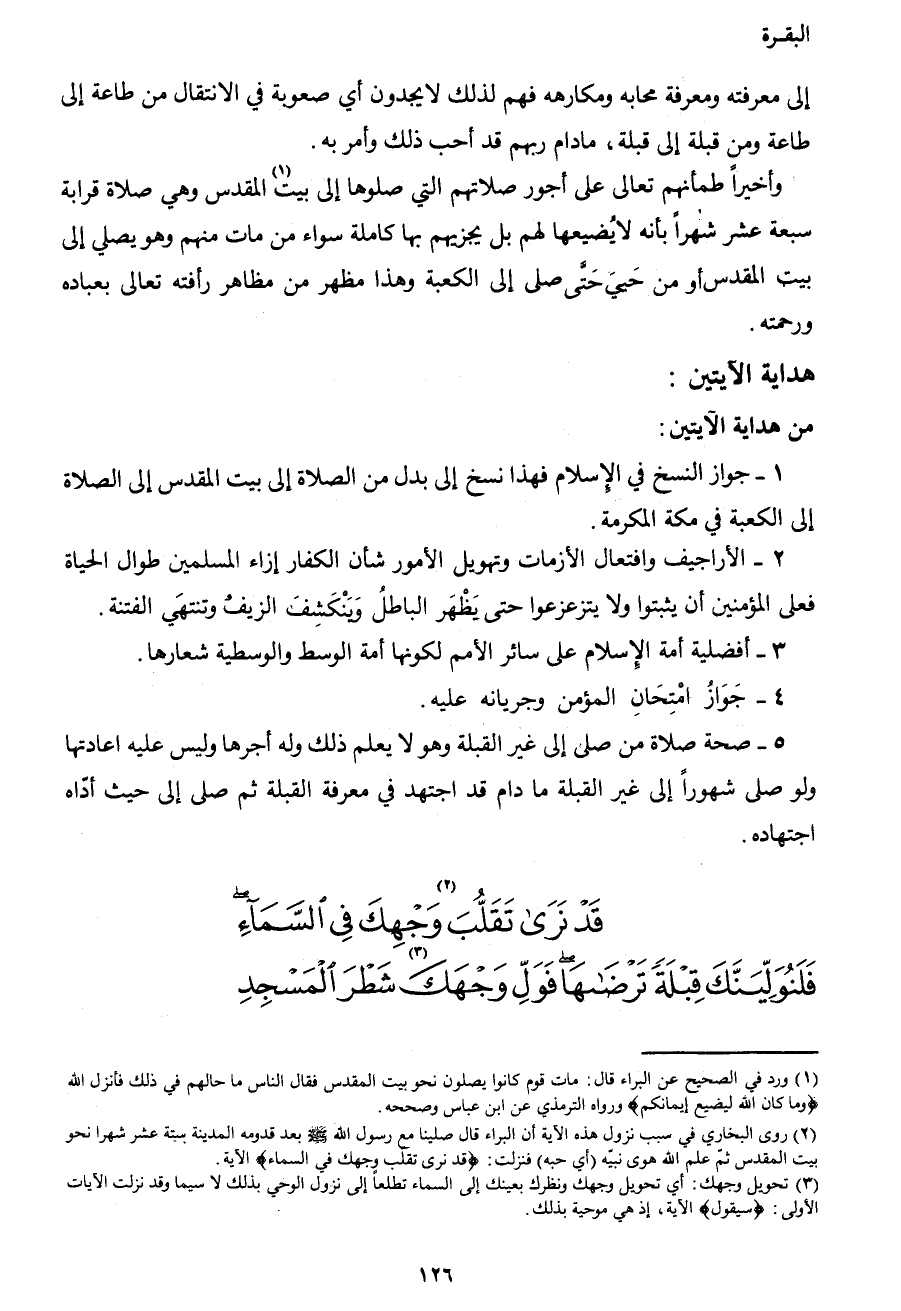 البقـرة
إلى معرفته ومعرفة محابه ومكارهه فهم لذلك لايجدون أي صعوبة في الانتقال من طاعة إلى
طاعة ومن قبلة إلى قبلة، مادام ربهم قد أحب ذلك وأمر به .
وأخيراً طمأنهم تعالى على أجور صلاتهم التي صلوها إلى بيت(١) المقدس وهي صلاة قرابة
سبعة عشر شهراً بأنه لايُضيعها لهم بل يجزيهم بها كاملة سواء من مات منهم وهو يصلي إلى
بيت المقدس أو من حَيِيَ حَتَّى صلى إلى الكعبة وهذا مظهر من مظاهر رأفته تعالى بعباده
ورحمته .
هداية الآيتين :
من هداية الآيتين:
١ ـ جواز النسخ في الإسلام فهذا نسخ إلى بدل من الصلاة إلى بيت المقدس إلى الصلاة
إلى الكعبة في مكة المكرمة .
٢ ـ الأراجيف وافتعال الأزمات وتهويل الأمور شأن الكفار إزاء المسلمين طوال الحياة
فعلى المؤمنين أن يثبتوا ولا يتزعزعوا حتى يَظْهَر الباطلُ وَيَنْكَشِفَ الزيفُ وتنتهَي الفتنة .
٣ ـ أفضلية أمة الإسلام على سائر الأمم لكونها أمة الوسط والوسطية شعارها .
٤ ـ جَوَازُ امْتِحَانِ المؤمن وجريانه عليه .
٥ ـ صحة صلاة من صلى إلى غير القبلة وهو لا يعلم ذلك وله أجرها وليس عليه اعادتها
ولو صلى شهوراً إلى غير القبلة ما دام قد اجتهد في معرفة القبلة ثم صلى إلى حيث أدّاه
اجتهاده .
قَدْ نَرَىٰ تَقَلُّبَ(٢) وَجْهِكَ فِي السَّمَآءِۖ
فَلَنُوَلِّيَنَّكَ قِبْلَةً تَرْضَىٰهَاۖ فَوَلِّ وَجْهَكَ(٣) شَطْرَ الْمَسْجِدِ
(١) ورد في الصحيح عن البراء قال: مات قوم كانوا يصلون نحو بيت المقدس فقال الناس ما حالهم في ذلك فأنزل الله
﴿وما كان الله ليضيع إيمانكم﴾ ورواه الترمذي عن ابن عباس وصححه.
(٢) روى البخاري في سبب نزول هذه الآية أن البراء قال صلينا مع رسول الله ﷺ بعد قدومه المدينة ستة عشر شهرا نحو
بيت المقدس ثمّ علم الله هوى نبيّه (أي حبه) فنزلت: ﴿قد نرى تقلّب وجهك في السماء﴾ الآية .
(٣) تحويل وجهك: أي تحويل وجهك ونظرك بعينك إلى السماء تطلعاً إلى نزول الوحي بذلك لا سيما وقد نزلت الآيات
الأولى: ﴿سيقول﴾ الآية، إذ هي موحية بذلك .
١٢٦